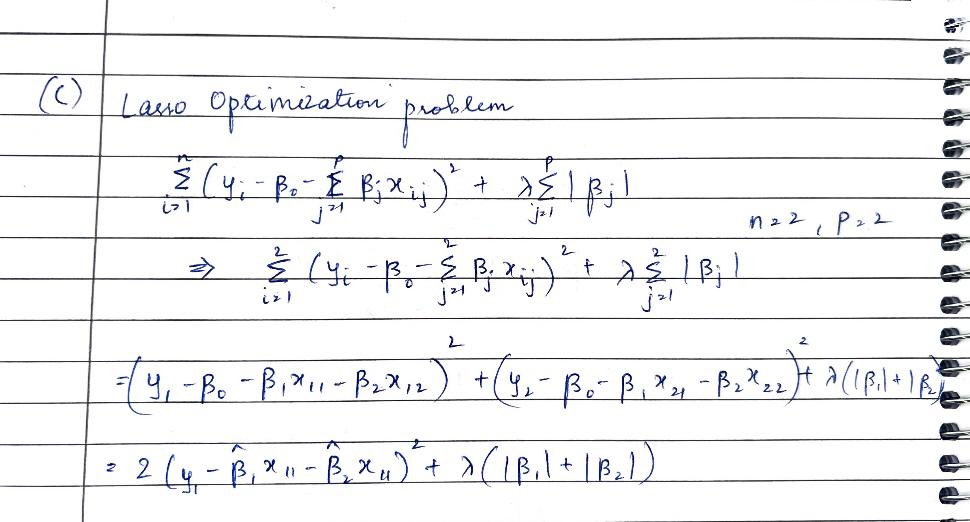 (C) Lasso Optimization problem
∑_{i=1}^{n} (y_i - β_0 - ∑_{j=1}^{p} β_j x_{ij})^2 + λ ∑_{j=1}^{p} |β_j|
n=2, P=2
⇒ ∑_{i=1}^{2} (y_i - β_0 - ∑_{j=1}^{2} β_j x_{ij})^2 + λ ∑_{j=1}^{2} |β_j|
= (y_1 - β_0 - β_1 x_{11} - β_2 x_{12})^2 + (y_2 - β_0 - β_1 x_{21} - β_2 x_{22})^2 + λ(|β_1| + |β_2|
= 2 (y_1 - β̂_1 x_{11} - β̂_2 x_{11})^2 + λ(|β_1| + |β_2|)